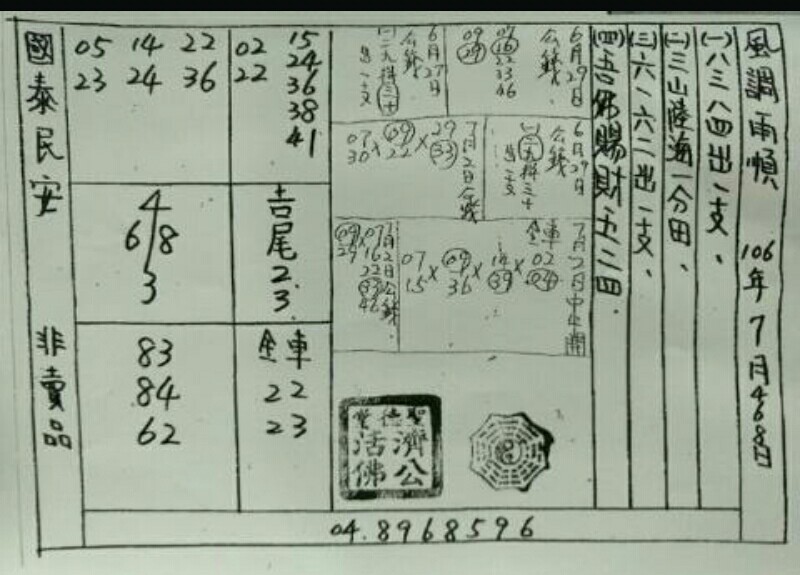 風調雨順 106年7月4 6 8日
(一)八三八四出一支、
(二)三山陸海一分田、
(三)六一六二出一支、
(四)吾佛賜財五二四
6月29日
公錢
09 07
29 16
22
33
46
6月27日
公錢
二九拼三十
出一支
6月29日
公錢
二九拼三十
出一支
7月2日公錢
07 × 09 × 29
30 22 33
7月2日中 開
金車
07 × 09 × 14 × 02
15 36 39 04
7月2日公錢
09 × 07
29 16
22
33
46
聖德堂
濟公
活佛
02 15
22 24
36
38
41
吉尾
2.3.
金車
22
23
05 14 22
23 24 36
4
6 8
3
83
84
62
國泰民安 非賣品
04.8968596